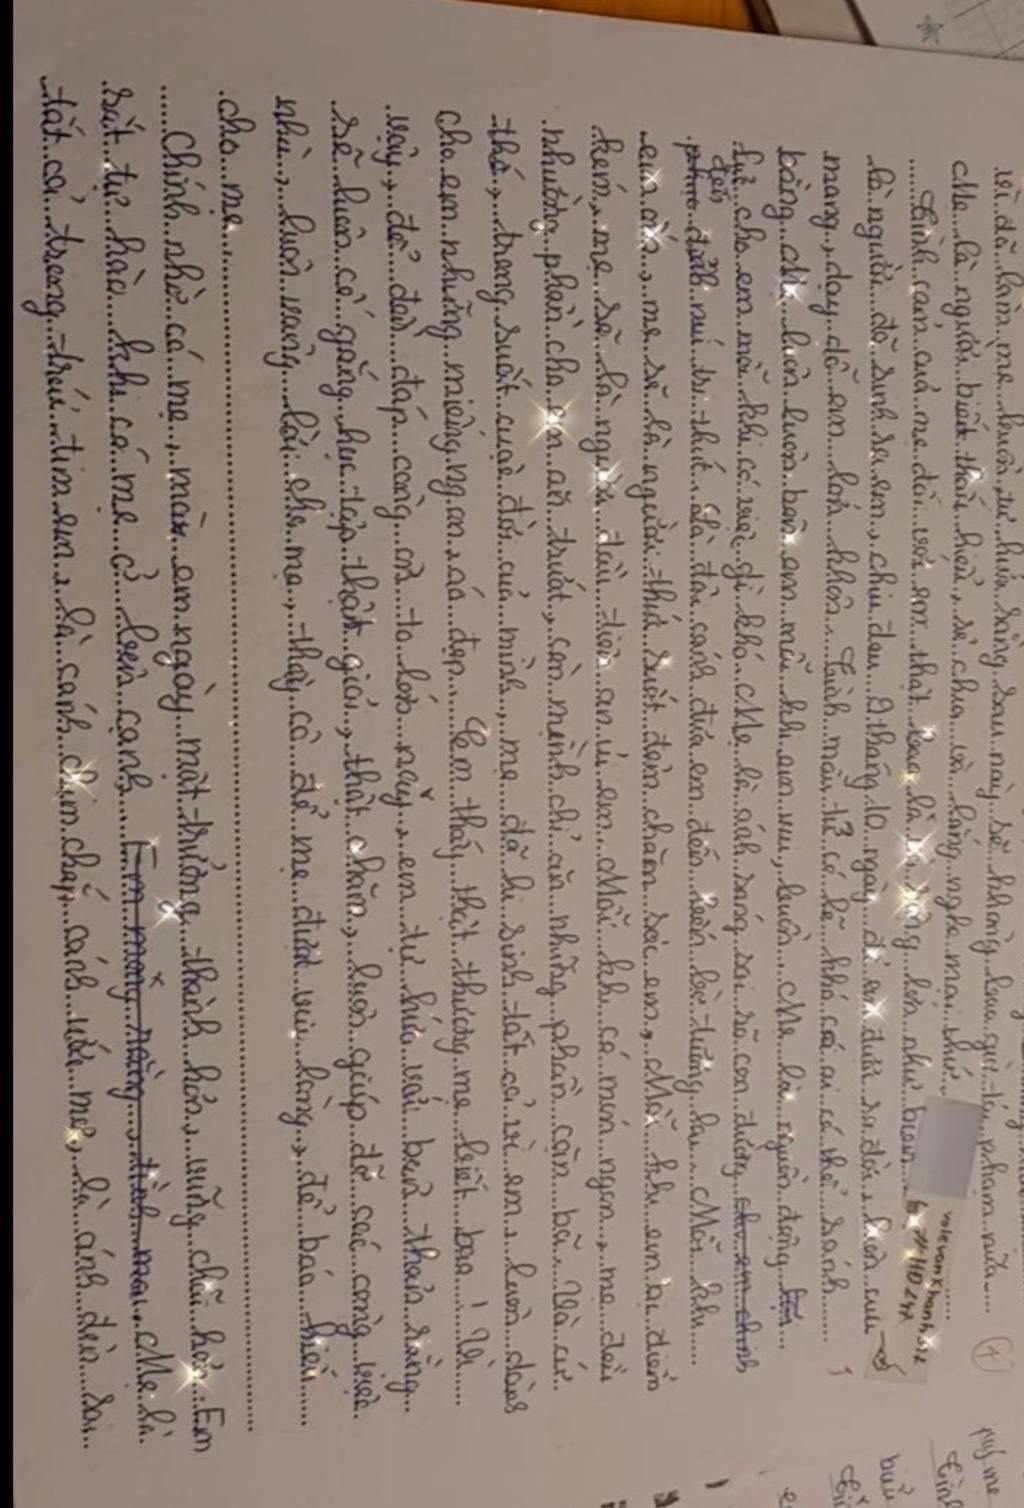 ..vì đã làm mẹ buồn, tự hứa rằng sau này sẽ không bao giờ tái phạm nữa....
Mẹ là người biết thấu hiểu, sẻ chia và lắng nghe mọi thứ...
....Tình cảm của mẹ đối với em thật bao la và rộng lớn như biển...
là người đã sinh ra em, chịu đau 9 tháng 10 ngày để em được ra đời, luôn cưu
mang, dạy dỗ em lớn khôn. Tình mẫu tử có lẽ khó cói ai có thể sánh....
bằng. Mẹ luôn luôn bên em mỗi khi em vui, buồn. Mẹ là nguồn động
lực cho em mỗi khi có việc gì khó. Mẹ là ánh sáng soi rõ con đường cho em chinh
phục đỉnh núi tri thức. Là đôi cánh đưa em đến bến bờ tương lai. Mỗi khi....
đến
em ốm, mẹ sẽ là người thức suốt đêm chăm sóc em. Mỗi khi em bị điểm
kém, mẹ sẽ là người đầu tiên an ủi em. Mỗi khi có món ngon, mẹ đều
nhường phần cho em ăn trước, còn mình chỉ ăn những phần cặn bã. Và cứ
thế, trong suốt cuộc đời của mình, mẹ đã hi sinh tất cả vì em, luôn dành
cho em những miếng ngon, áo đẹp.... Em thấy thật thương mẹ biết bao! Vì....
vậy, để đền đáp công ơn to lớn này, em tự hứa với bản thân rằng...
sẽ luôn cố gắng học tập thật giỏi, thật chăm, luôn giúp đỡ các công việc.
nhà, luôn vâng lời cha mẹ, thầy cô để mẹ được vui lòng, để báo hiếu....
cho mẹ....
......Chính nhờ có mẹ, mà em ngày một trưởng thành hơn, vững chãi hơn. Em
rất tự hào khi có mẹ ở bên cạnh. Em mong rằng, tình mai. Mẹ là
tất cả trong trái tim em, là cánh chim chắp cánh ước mơ, là ánh đèn soi..
4
volevankhanh552
HD247